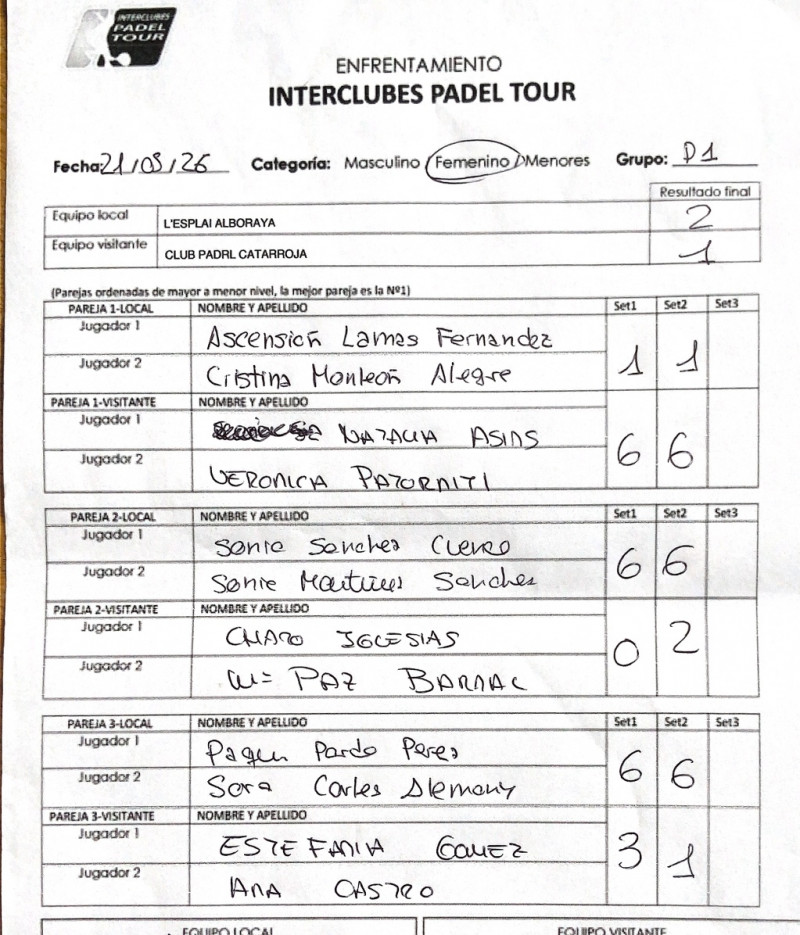 INTERCLUBES
PADEL
TOUR
ENFRENTAMIENTO
INTERCLUBES PADEL TOUR
Fecha: 21/03/26 Categoría: Masculino / Femenino / Menores Grupo: D1
Resultado final
Equipo local L'ESPLAI ALBORAYA 2
Equipo visitante CLUB PADRL CATARROJA 1
(Parejas ordenadas de mayor a menor nivel, la mejor pareja es la Nº1)
PAREJA 1-LOCAL NOMBRE Y APELLIDO Set1 Set2 Set3
Jugador 1 Ascensión Lamas Fernandez
Jugador 2 Cristina Monleón Alegre 1 1
PAREJA 1-VISITANTE NOMBRE Y APELLIDO
Jugador 1 NATALIA ASINS
Jugador 2 VERONICA PATORNITI 6 6
PAREJA 2-LOCAL NOMBRE Y APELLIDO Set1 Set2 Set3
Jugador 1 Sonia Sanchez Cuerzo
Jugador 2 Sonia Martinez Sanchez 6 6
PAREJA 2-VISITANTE NOMBRE Y APELLIDO
Jugador 1 CHARO IGLESIAS
Jugador 2 Mª PAZ 0 2
PAREJA 3-LOCAL NOMBRE Y APELLIDO Set1 Set2 Set3
Jugador 1 Paqui Pardo Perez
Jugador 2 Sara Carles Alemany 6 6
PAREJA 3-VISITANTE NOMBRE Y APELLIDO
Jugador 1 ESTEFANIA GOMEZ
Jugador 2 ANA CASTRO 3 1
EQUIPO LOCAL EQUIPO VISITANTE